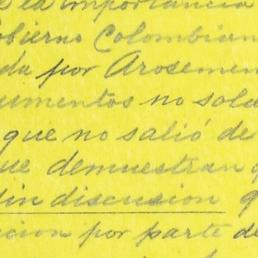 de la importancia
obierno Colombian
da por Arosemen
umentos no sola
que no salió de
ue demuestran q
sin discusion q
cion por parte de